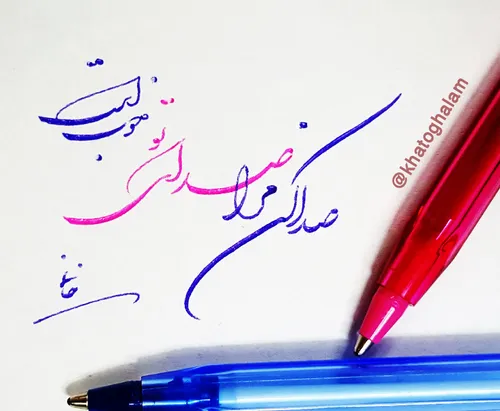 صدا کن مرا
صدای تو
خوب است
@khatoghalam